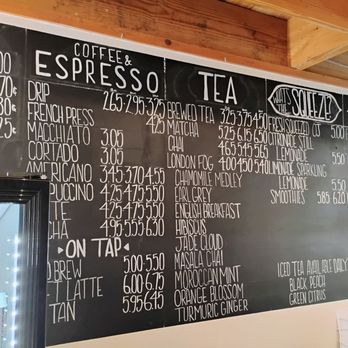 COFFEE &
ESPRESSO
DRIP 2.65 2.95 3.25
FRENCH PRESS 4.25
MACCHIATO 3.05
CORTADO 3.05
AMERICANO 3.45 3.70 4.55
PUCCINO 4.25 4.75 5.50
TE 4.25 4.75 5.50
HA 4.95 5.55 6.30
ON TAP
D BREW 5.00 5.50
LATTE 6.00 6.75
TAN 5.95 6.45
TEA
BREWED TEA 3.25 3.75 4.50
MATCHA 5.25 6.15 6.50
CHAI 4.65 5.15 5.45
LONDON FOG 4.00 4.50 5.40
CHAMOMILE MEDLEY
EARL GREY
ENGLISH BREAKFAST
HIBISCUS
JADE CLOUD
MASALA CHAI
MOROCCAN MINT
ORANGE BLOSSOM
TURMURIC GINGER
WHAT'S
SQUEEZE
FRESH SQUEEZED OJ 5.00
CITRONADE STILL
LEMONADE 5.50
LIMONADE SPARKLING
LEMONADE 5.50
SMOOTHIES 5.85 6.20
ICED TEA AVAILABLE DAILY
BLACK PEACH
GREEN CITRUS